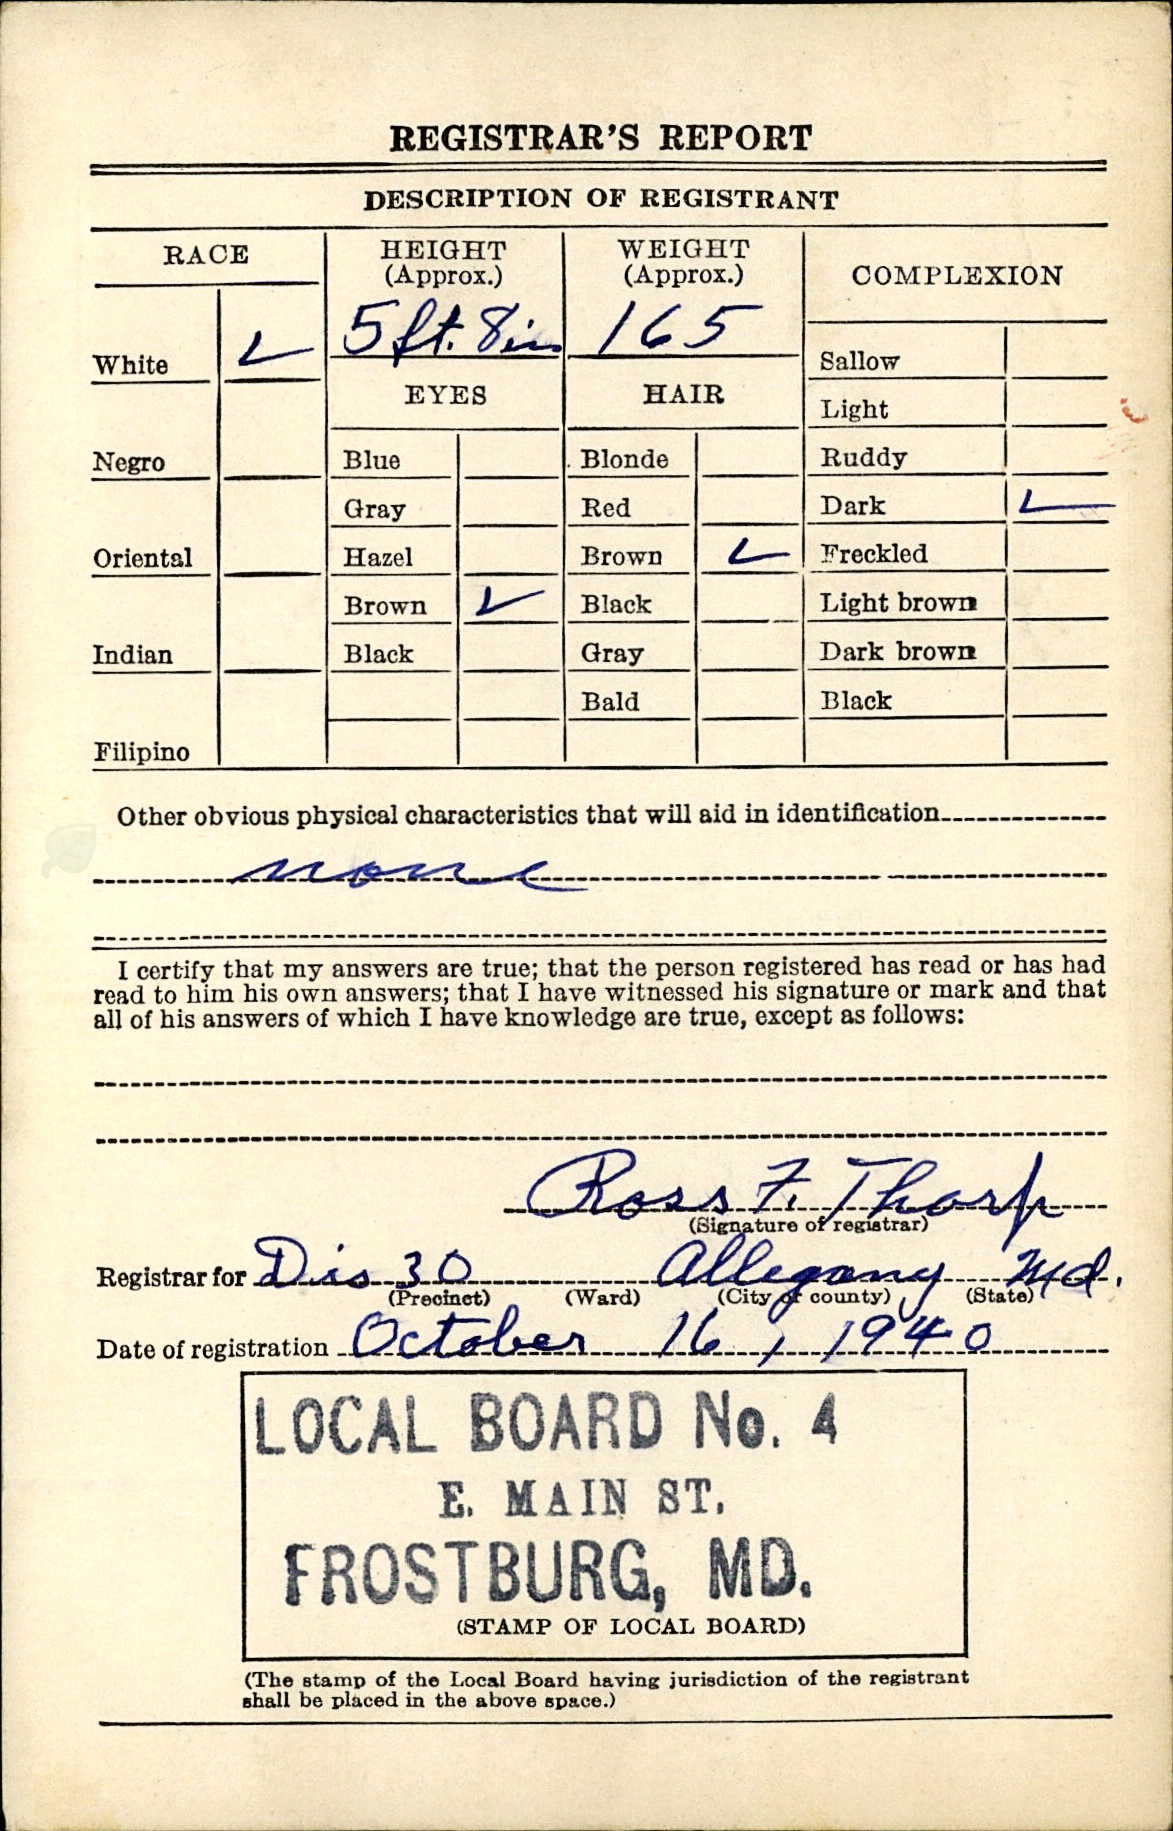 REGISTRAR'S REPORT
DESCRIPTION OF REGISTRANT
RACE
HEIGHT
(Approx.)
WEIGHT
(Approx.)
COMPLEXION
5 ft. 8 in
165
White
Sallow
EYES
HAIR
Light
Negro
Blue
Blonde
Ruddy
Gray
Red
Dark
Oriental
Hazel
Brown
Freckled
Brown
Black
Light brown
Indian
Black
Gray
Dark brown
Bald
Black
Filipino
Other obvious physical characteristics that will aid in identification
none
I certify that my answers are true; that the person registered has read or has had
read to him his own answers; that I have witnessed his signature or mark and that
all of his answers of which I have knowledge are true, except as follows:
Ross F. Tharp
(Signature of registrar)
Registrar for Dis 30 Allegany Md.
(Precinct) (Ward) (City or county) (State)
Date of registration October 16, 1940
LOCAL BOARD No. 4
E. MAIN ST.
FROSTBURG, MD.
(STAMP OF LOCAL BOARD)
(The stamp of the Local Board having jurisdiction of the registrant
shall be placed in the above space.)